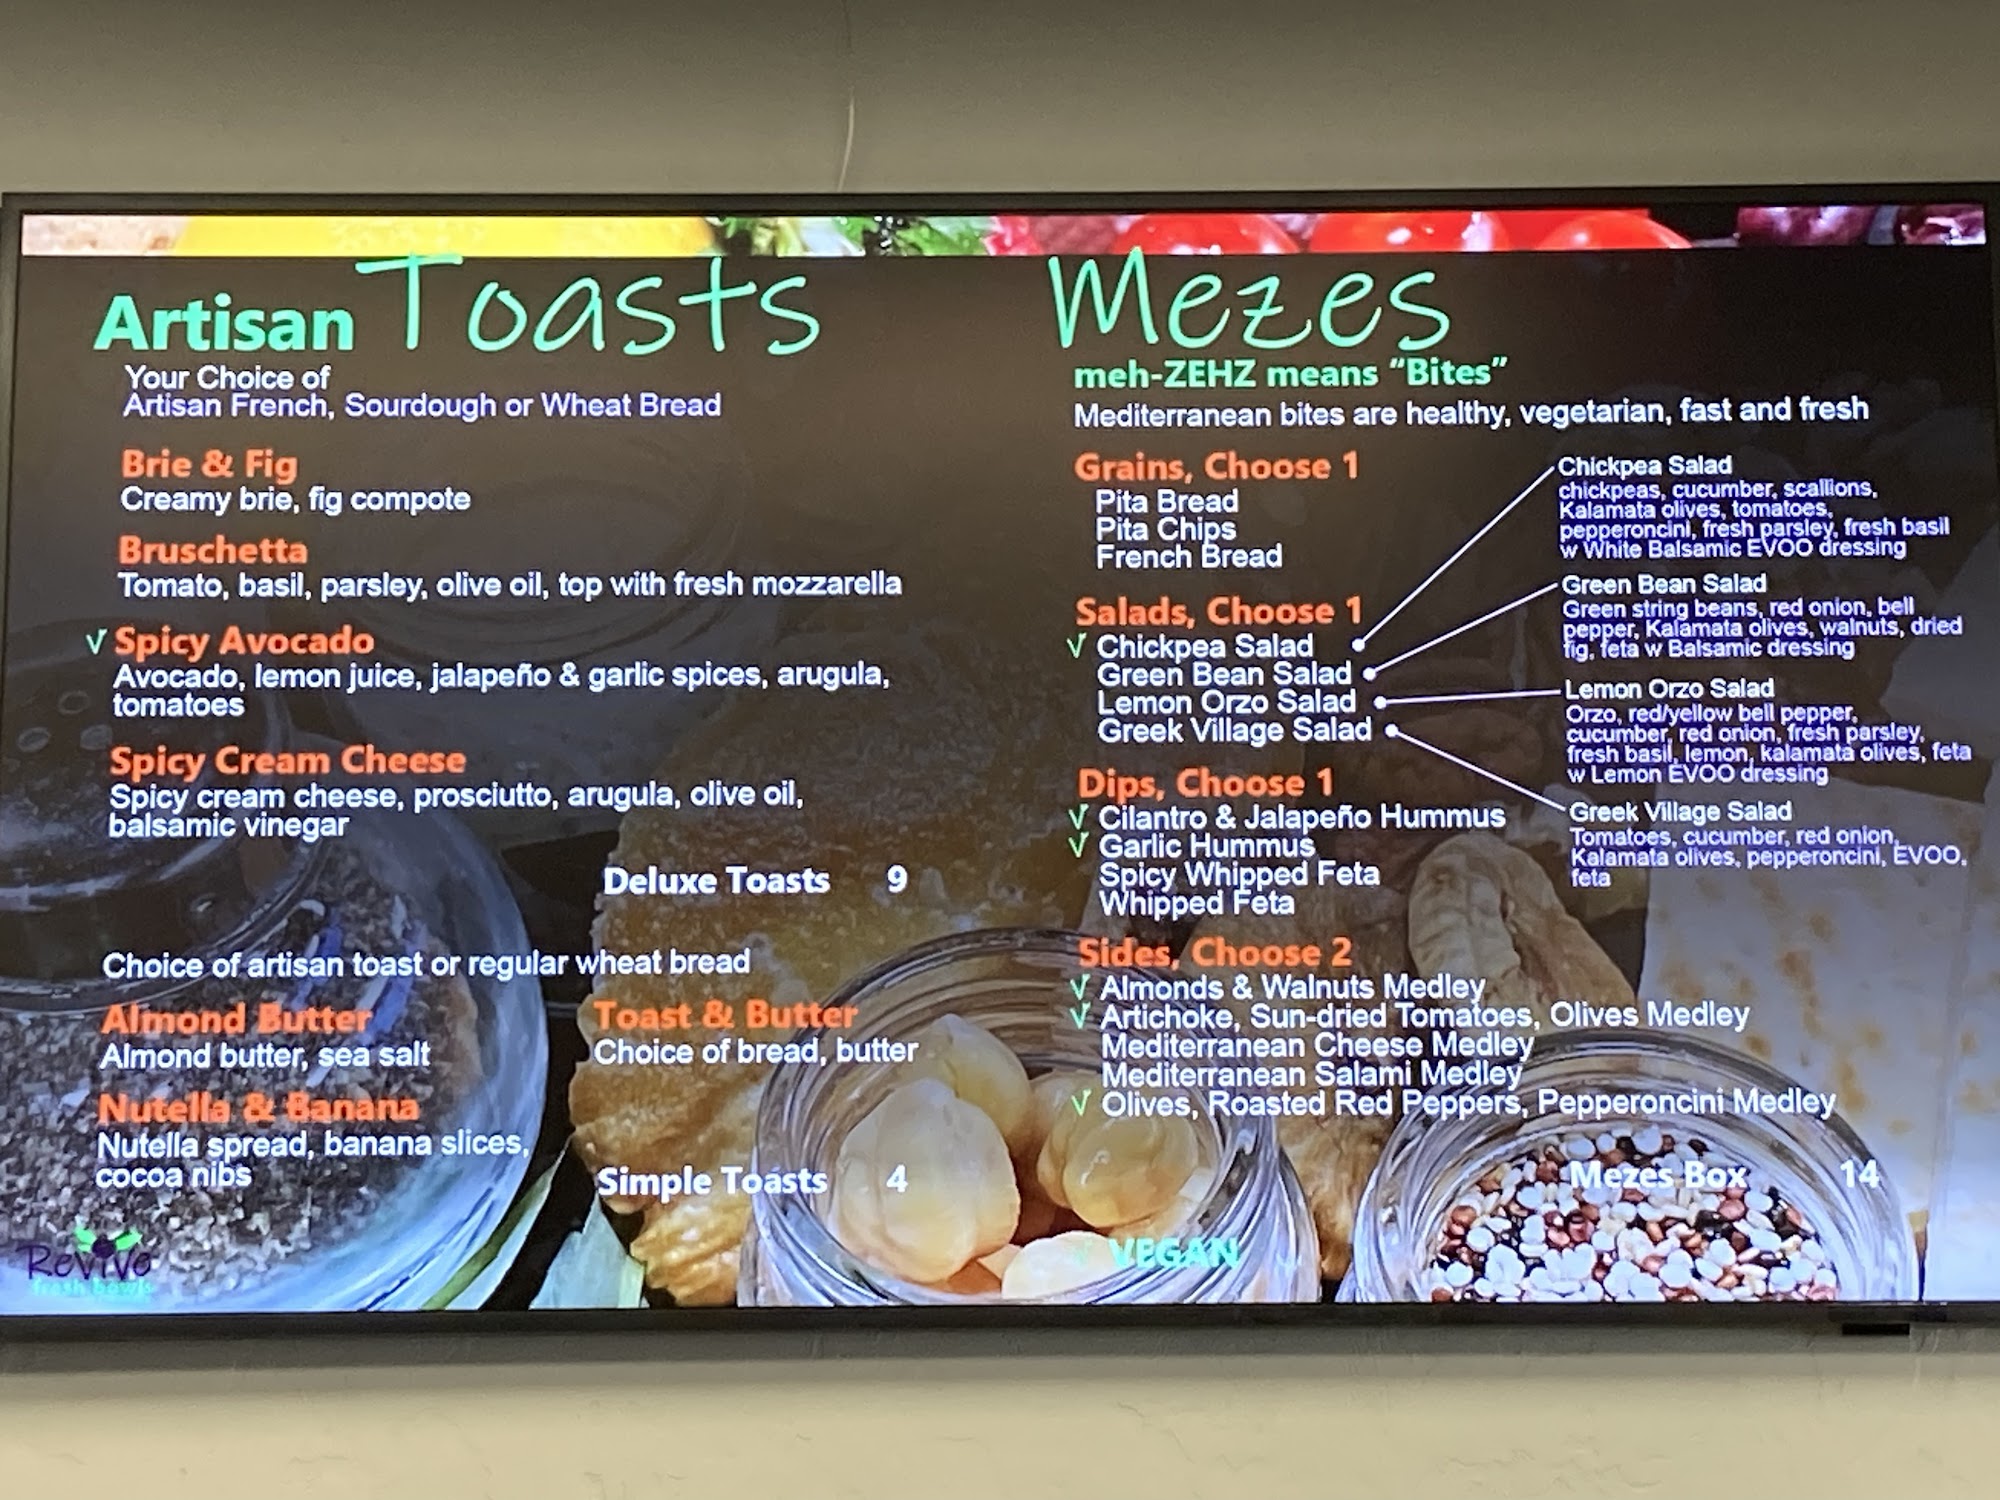 Artisan Toasts
Your Choice of
Artisan French, Sourdough or Wheat Bread
Brie & Fig
Creamy brie, fig compote
Bruschetta
Tomato, basil, parsley, olive oil, top with fresh mozzarella
√ Spicy Avocado
Avocado, lemon juice, jalapeño & garlic spices, arugula,
tomatoes
Spicy Cream Cheese
Spicy cream cheese, prosciutto, arugula, olive oil,
balsamic vinegar
Deluxe Toasts 9
Choice of artisan toast or regular wheat bread
Almond Butter
Almond butter, sea salt
Nutella & Banana
Nutella spread, banana slices,
cocoa nibs
Toast & Butter
Choice of bread, butter
Simple Toasts 4
Revive
fresh bowls
Mezes
meh-ZEHZ means “Bites”
Mediterranean bites are healthy, vegetarian, fast and fresh
Grains, Choose 1
Pita Bread
Pita Chips
French Bread
Salads, Choose 1
√ Chickpea Salad
Green Bean Salad
Lemon Orzo Salad
Greek Village Salad
Dips, Choose 1
√ Cilantro & Jalapeño Hummus
√ Garlic Hummus
Spicy Whipped Feta
Whipped Feta
Sides, Choose 2
√ Almonds & Walnuts Medley
√ Artichoke, Sun-dried Tomatoes, Olives Medley
Mediterranean Cheese Medley
Mediterranean Salami Medley
√ Olives, Roasted Red Peppers, Pepperoncini Medley
Mezes Box 14
√ VEGAN
Chickpea Salad
chickpeas, cucumber, scallions,
Kalamata olives, tomatoes,
pepperoncini, fresh parsley, fresh basil
w White Balsamic EVOO dressing
Green Bean Salad
Green string beans, red onion, bell
pepper, Kalamata olives, walnuts, dried
fig, feta w Balsamic dressing
Lemon Orzo Salad
Orzo, red/yellow bell pepper,
cucumber, red onion, fresh parsley,
fresh basil, lemon, kalamata olives, feta
w Lemon EVOO dressing
Greek Village Salad
Tomatoes, cucumber, red onion,
Kalamata olives, pepperoncini, EVOO,
feta